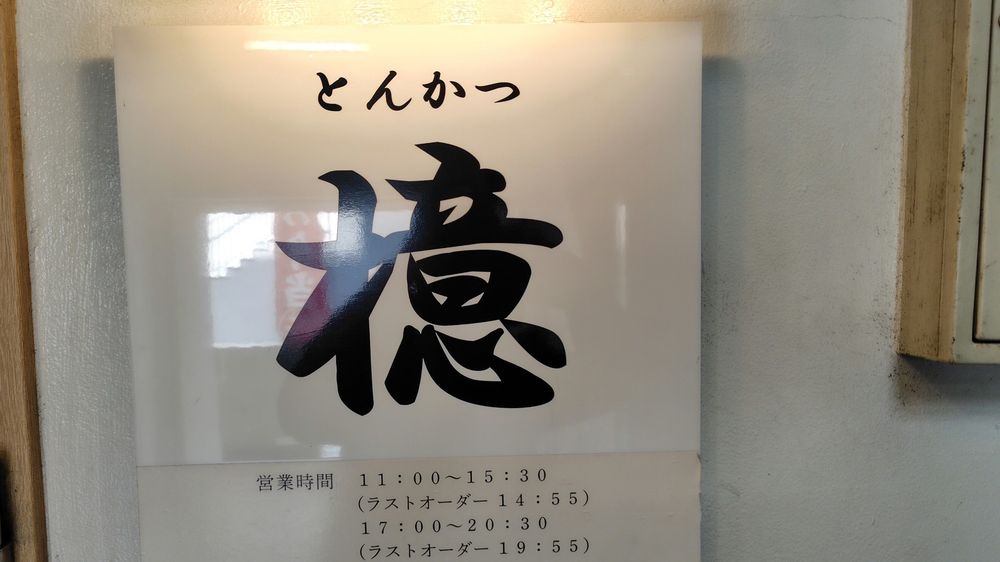 とんかつ
檍
営業時間 11:00～15:30
(ラストオーダー 14:55)
17:00～20:30
(ラストオーダー 19:55)